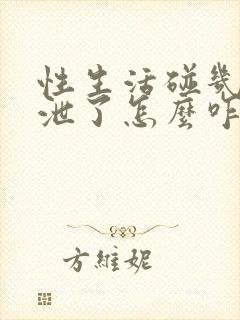 性生活碰幾
泄了怎麼咋
方維妮